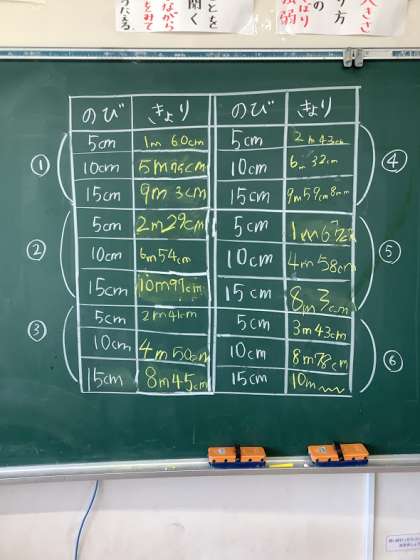 のび きょり のび きょり
① 5cm 1m 60cm 5cm 2m43cm ④
10cm 5m75cm 10cm 6m 32cm
15cm 9m 3cm 15cm 9m59cm8mm
② 5cm 2m29cm 5cm ⑤
10cm 6m54cm 10cm 4m 58cm
15cm 10m97cm 15cm 8m3cm
③ 5cm 2m41cm 5cm 3m43cm ⑥
10cm 4m50cm 10cm 8m78cm
15cm 8m45cm 15cm 10m